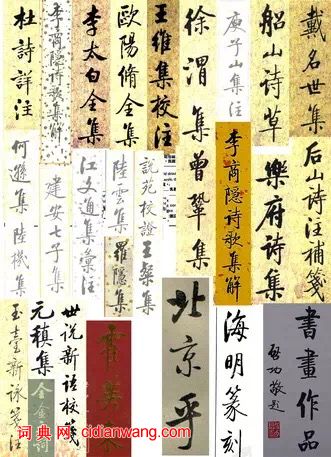 戴名世集
船山诗草
庾子山集注
徐渭集
王維集校注
歐陽脩全集
李太白全集
李商隐詩歌集解
杜詩詳注
后山诗注補箋
樂府诗集
李商隐诗歌集解
曾鞏集
王粲集
説苑校證
陸雲集
羅隱集
江文通集彙注
建安七子集
陸機集
何遜集
書畫作品
启功敬题
海明篆刻
北京乎
世说新语校笺
元稹集
全金詩
玉臺新詠笺注
词典网 cidianwang.com